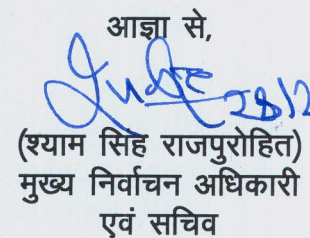 आज्ञा से,
28/2
(श्याम सिंह राजपुरोहित)
मुख्य निर्वाचन अधिकारी
एवं सचिव